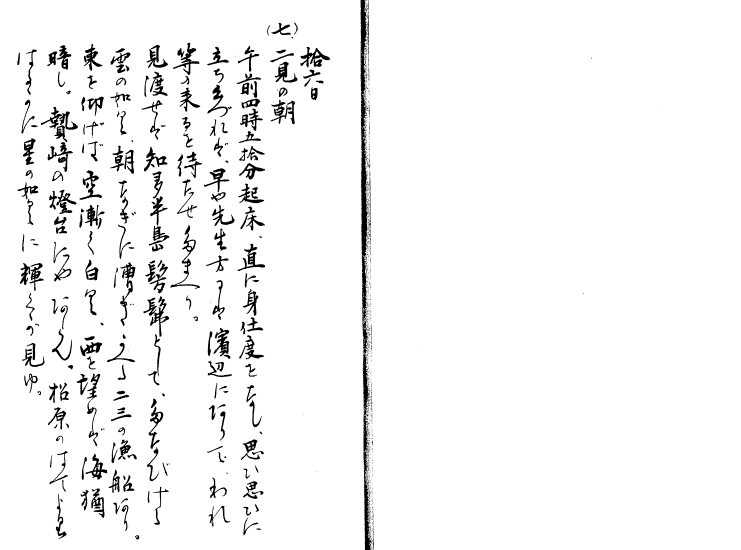 拾六日
(七)二見の朝
午前四時五拾分起床、直に身仕度をなし、思ひ思ひに
立ち出づれば、早や先生方は濱辺にありて、われ
等の来るを待たせ給へり。
見渡せば知多半島髣髴として、たなびける
雲の如く、朝なぎに漕ぎ 二三の漁船あり。
東を仰げば空漸く白く、西を望めば海猶
暗し。贄崎の燈台にやあらん。松原のはてより
はるかに星の如くに輝くが見ゆ。